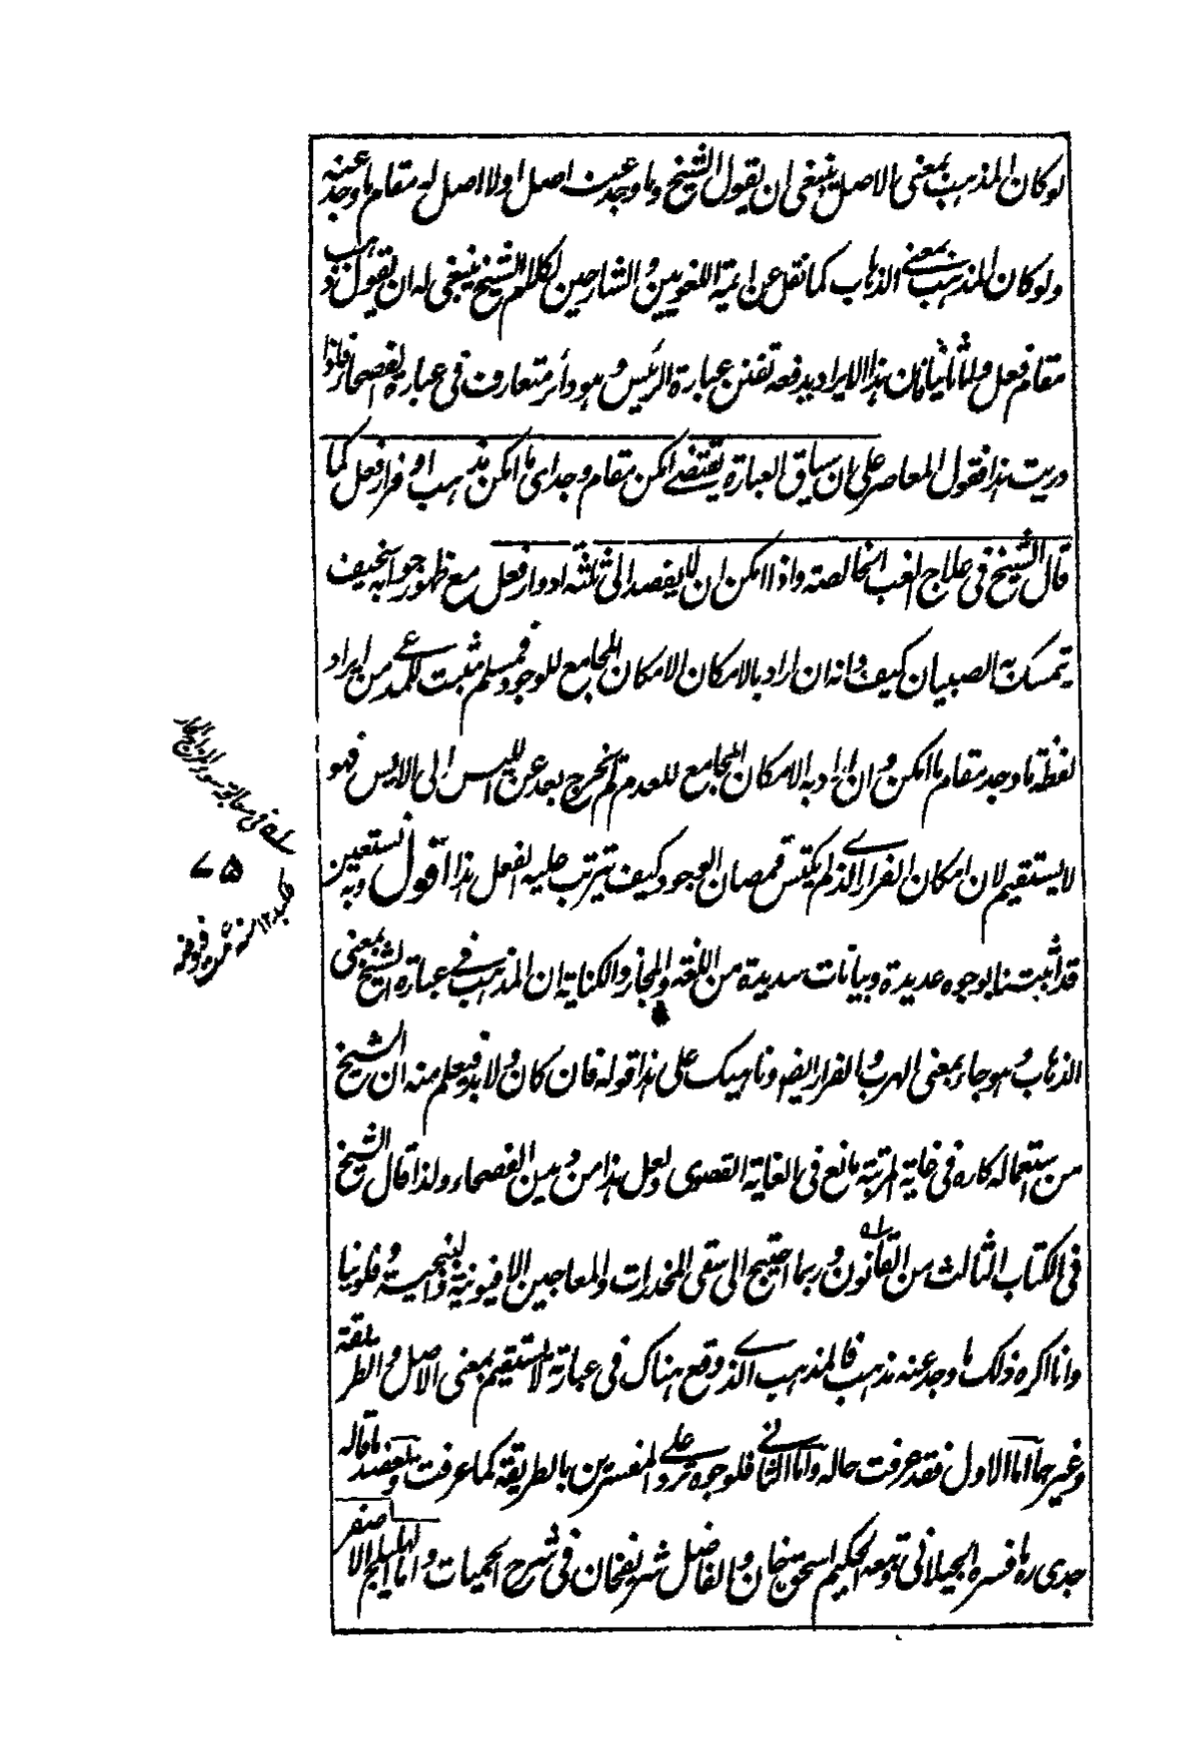 لو كان المذهب بمعنى الاصل ينبغى ان يقول الشيخ وما وجد عنه اصل او لا اصل له مقام ما وجد عنه
ولو كان المذهب بمعنے الذهاب كما نقل عن ايمة اللغويين و الشارحين لكلام الشيخ ينبغى له ان يقول ذهب
مقام فعل ولنا ثانيا فان هذا الايراد يدفعه تفنن عبارة الرئيس و هو دأئر متعارف فى عبارة الفصحا فاذا
دريت هذا فقول المعاصر على ان سياق العبارة يقتضے امكن مقام وجد اى ما امكن مذهب او فرار فعل كما
قال الشيخ فى علاج الغب الخالصة واذا امكن ان لا يفصد الى ثلثة ادوار فعل مع ظهور جوابه سخيف
يتمسك به الصبيان كيف وانه ان اراد بالامكان الامكان المجامع للوجود فمسلم مثبت للمدعے من ايراد
لفظة ما وجد مقام ما امكن و ان اراد به الامكان المجامع للعدم لم يخرج بعد عن الليس الى الايس فهو
لا يستقيم لان امكان الفرار الذے لم يكتس قمصان الوجود كيف يترتب عليه الفعل هذا اقول وبه نستعين
قد اثبتنا بوجوه عديدة وبيانات سديدة من اللغة والمجاز والكناية ان المذهب فے عبارة الشيخ بمعنى
الذهاب و هو جاء بمعنى الهرب والفرار ايضا وناهيك على هذا قوله فان كان ولا بد فيعلم منه ان الشيخ
من استعماله كاره فى غاية المرتبة مانع فى الغاية القصوى ولعل هذا من و بين الفصحاء ولذا قال الشيخ
فى الكتاب الثالث من القانون و ربما احتيج الى سقى المخدرات والمعاجين الافيونية والبنجية و فلونيا
وانا اكره ذلك ما وجد عنه مذهب فالمذهب الذے وقع هناك فى عبارته لا يستقيم بمعنى الاصل و الطريقة
وغيرهما اما الاول فقد عرفت حاله واما الثانے فلوجوه ترد علے المفسرين بالطريقة كما عرفت ويعضد ما قاله
جدى ره ما فسره الجيلانى وتبعه الحكيم اسحق خان والفاضل شريفخان فى شرح الحميات و اما الهليلج الاصفر
له فى
٧٥
جلد ١٢